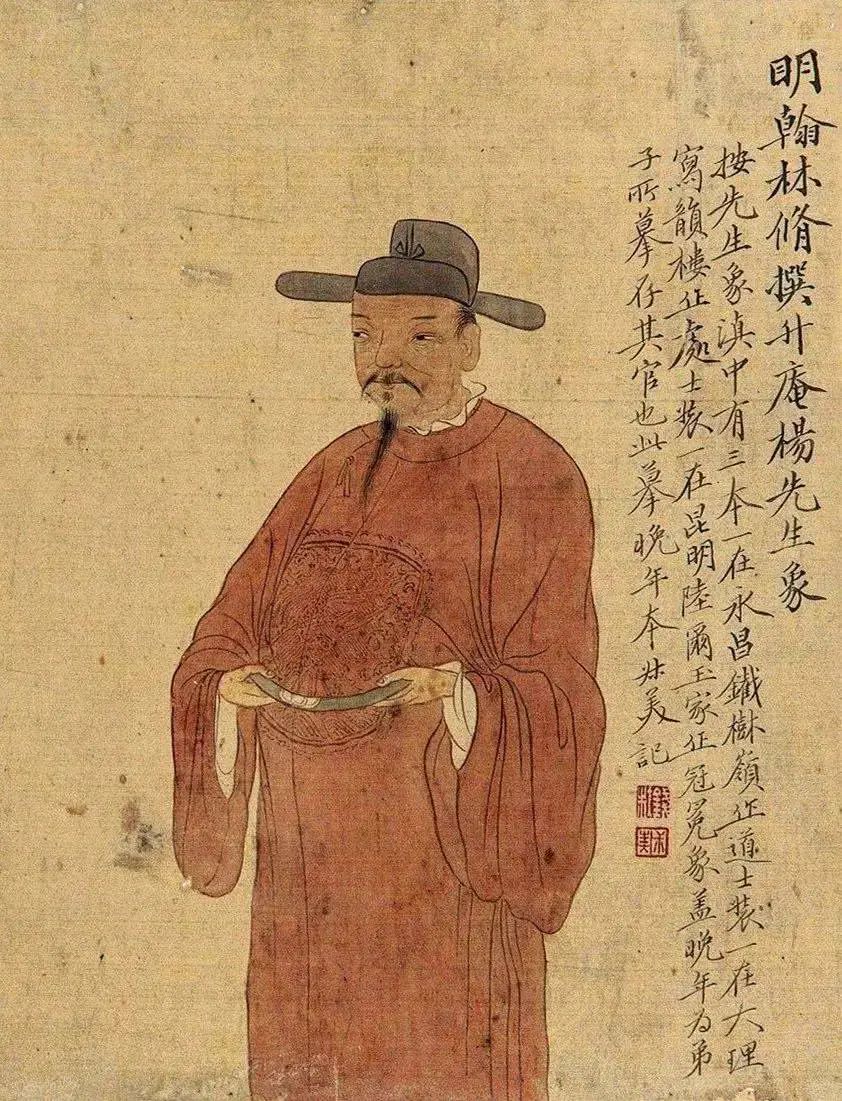 明翰林脩撰升庵楊先生象
按先生象滇中有三本一在永昌鐵樹嶺作道士裝一在大理
寫韻樓作處士裝一在昆明陸爾玉家作冠冕象蓋晚年為弟
子所摹存其官也此摹晚年本尗美記